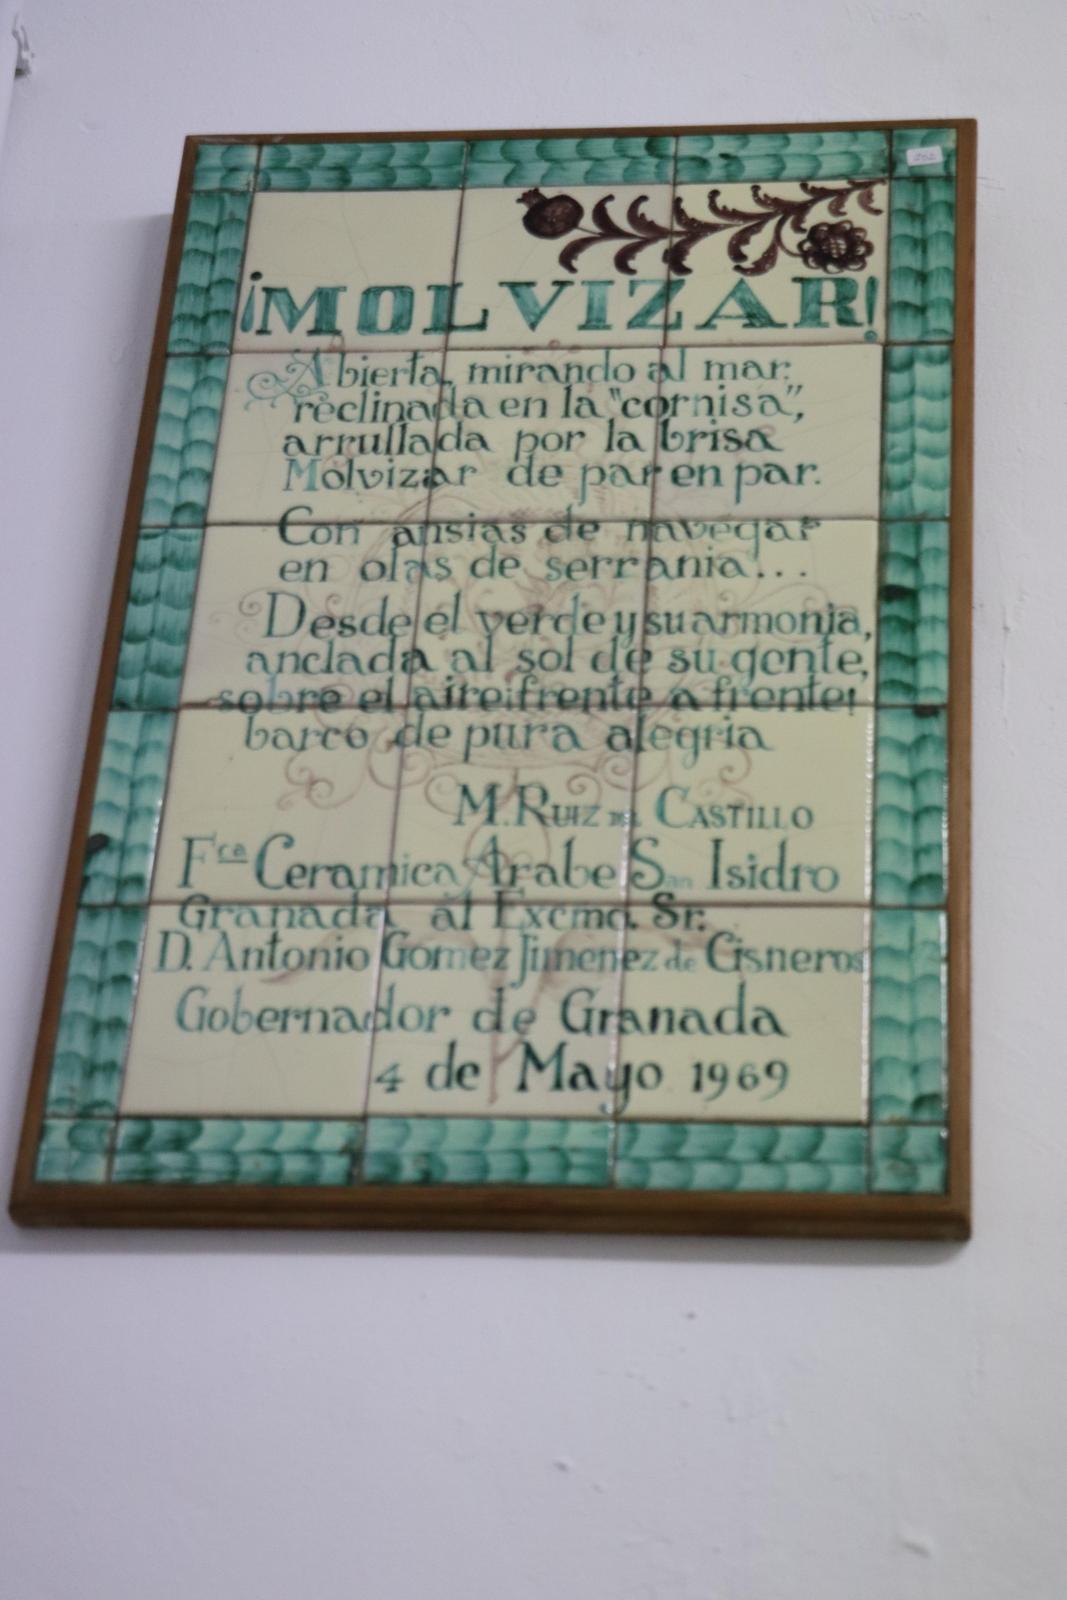 ¡MOLVIZAR!
Abierta, mirando al mar,
reclinada en la "cornisa",
arrullada por la brisa
Molvizar de par en par.
Con ansias de navegar
en olas de serrania...
Desde el verde y su armonia,
anclada al sol de su gente,
sobre el aire ¡frente a frente!
barco de pura alegria
M. RUIZ DEL CASTILLO
Fca Ceramica Arabe San Isidro
Granada al Excmo. Sr.
D. Antonio Gomez Jimenez de Cisneros
Gobernador de Granada
4 de Mayo 1969